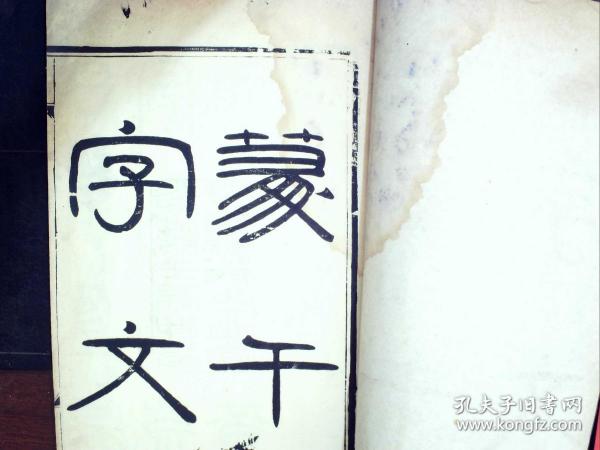 篆千
字文
孔夫子旧书网
www.kongfz.com